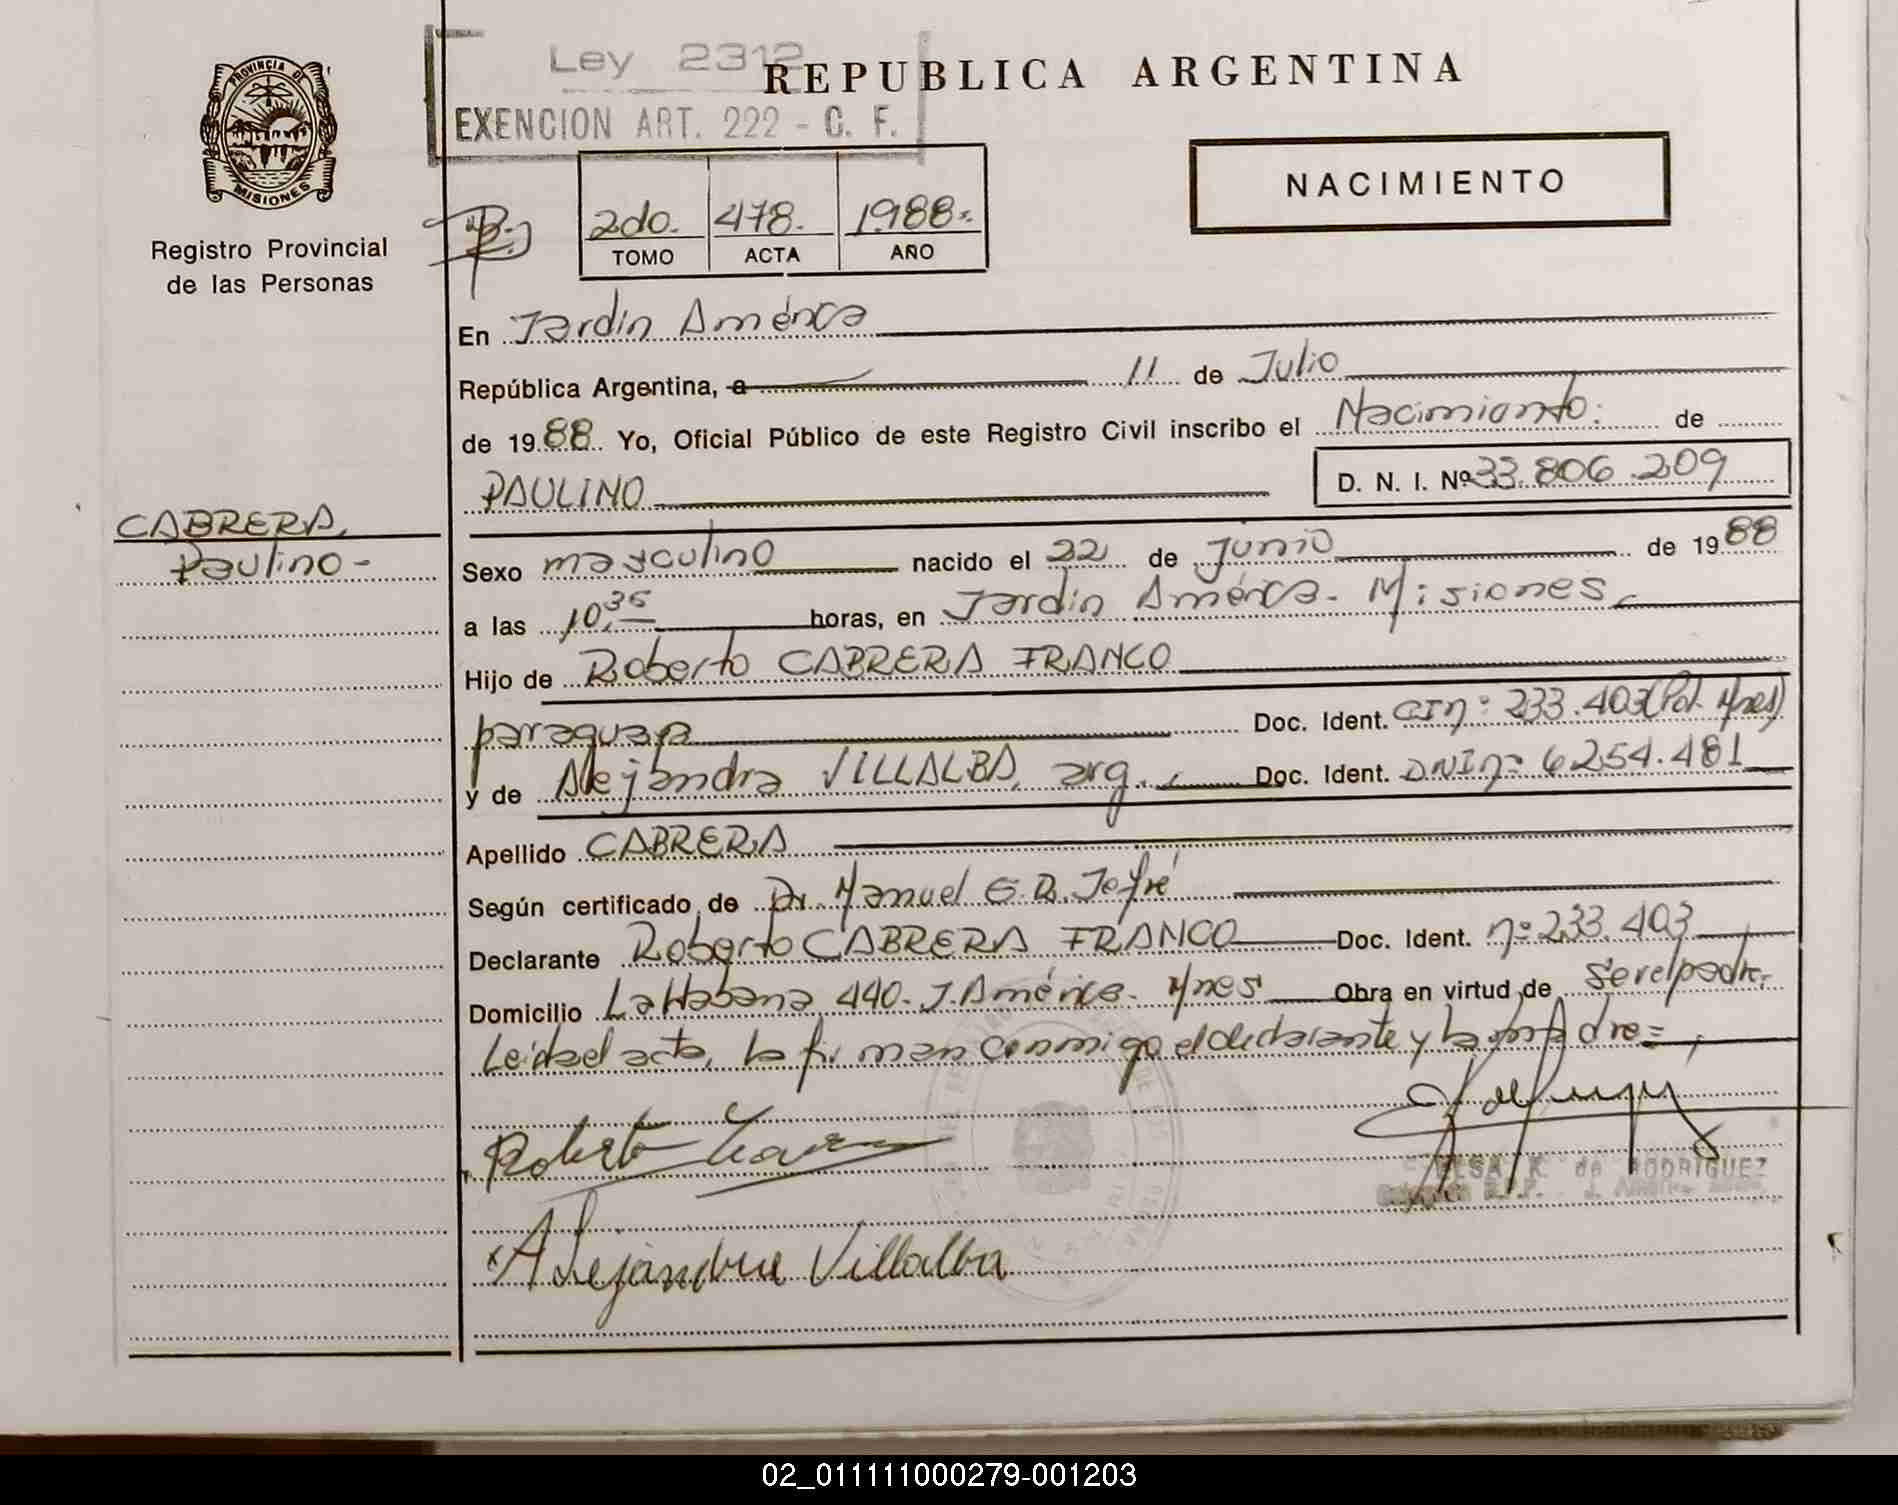 Ley 2312
REPUBLICA ARGENTINA
EXENCION ART. 222 - C. F.
PROVINCIA DE
MISIONES
Registro Provincial
de las Personas
NACIMIENTO
2do. 478. 1988
TOMO ACTA AÑO
En Jardín América
República Argentina, a 11 de Julio
de 1988 Yo, Oficial Público de este Registro Civil inscribo el Nacimiento: de
PAULINO D. N. I. Nº 33.806.209
CABRERA,
Paulino-
Sexo masculino nacido el 22 de junio de 1988
a las 10,35 horas, en Jardín América. Misiones.
Hijo de Roberto CABRERA FRANCO
paraguaya Doc. Ident. CI nº 233.403 (Pol. Mnes)
y de Alejandra VILLALBA, arg. Doc. Ident. DNI nº 6254.481
Apellido CABRERA
Según certificado de Dr. Manuel E.R. Jofré
Declarante Roberto CABRERA FRANCO Doc. Ident. nº 233.403
Domicilio La Habana 440. J. América. Mnes Obra en virtud de ser el padre.
Leída el acta, la firman conmigo el declarante y la madre=
Roberto
ELSA K. de RODRIGUEZ
Alejandra Villalba
02_011111000279-001203